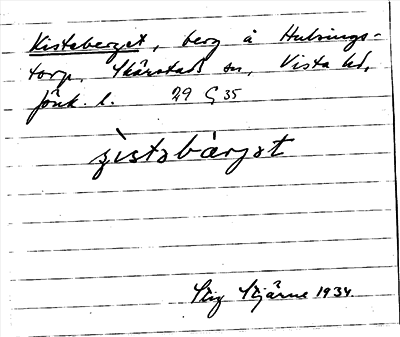 Kistaberget, berg å Hulrings-
torp, Skärstads sn, Vista hd,
Jönk. l. 29 G 35
Stig Stjärne 1934.